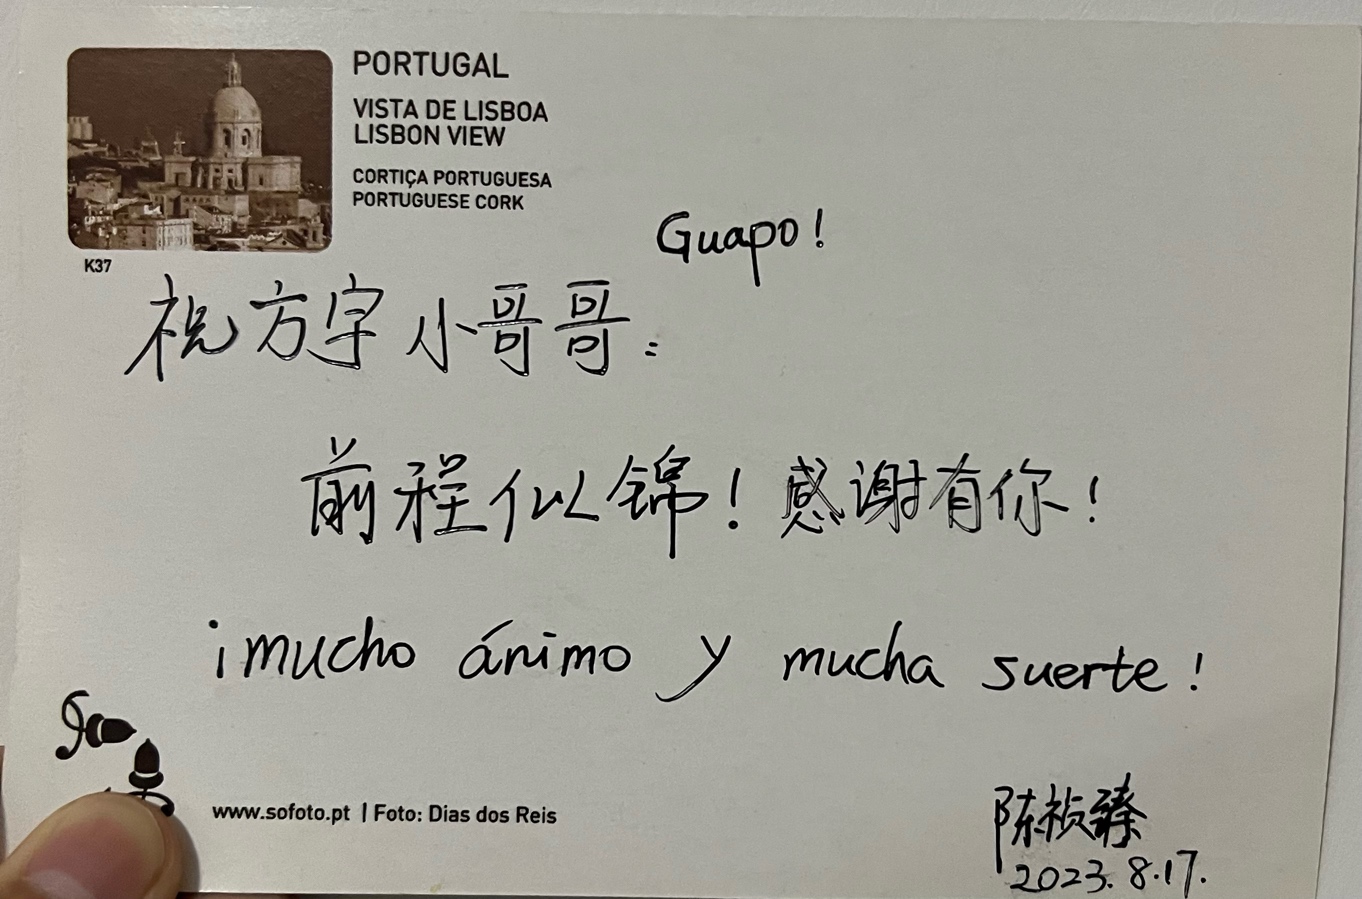 PORTUGAL
VISTA DE LISBOA
LISBON VIEW
CORTIÇA PORTUGUESA
PORTUGUESE CORK
K37
Guapo!
祝方字小哥哥:
前程似锦!感谢有你!
¡mucho ánimo y mucha suerte!
www.sofoto.pt | Foto: Dias dos Reis
陈祯臻
2023.8.17.